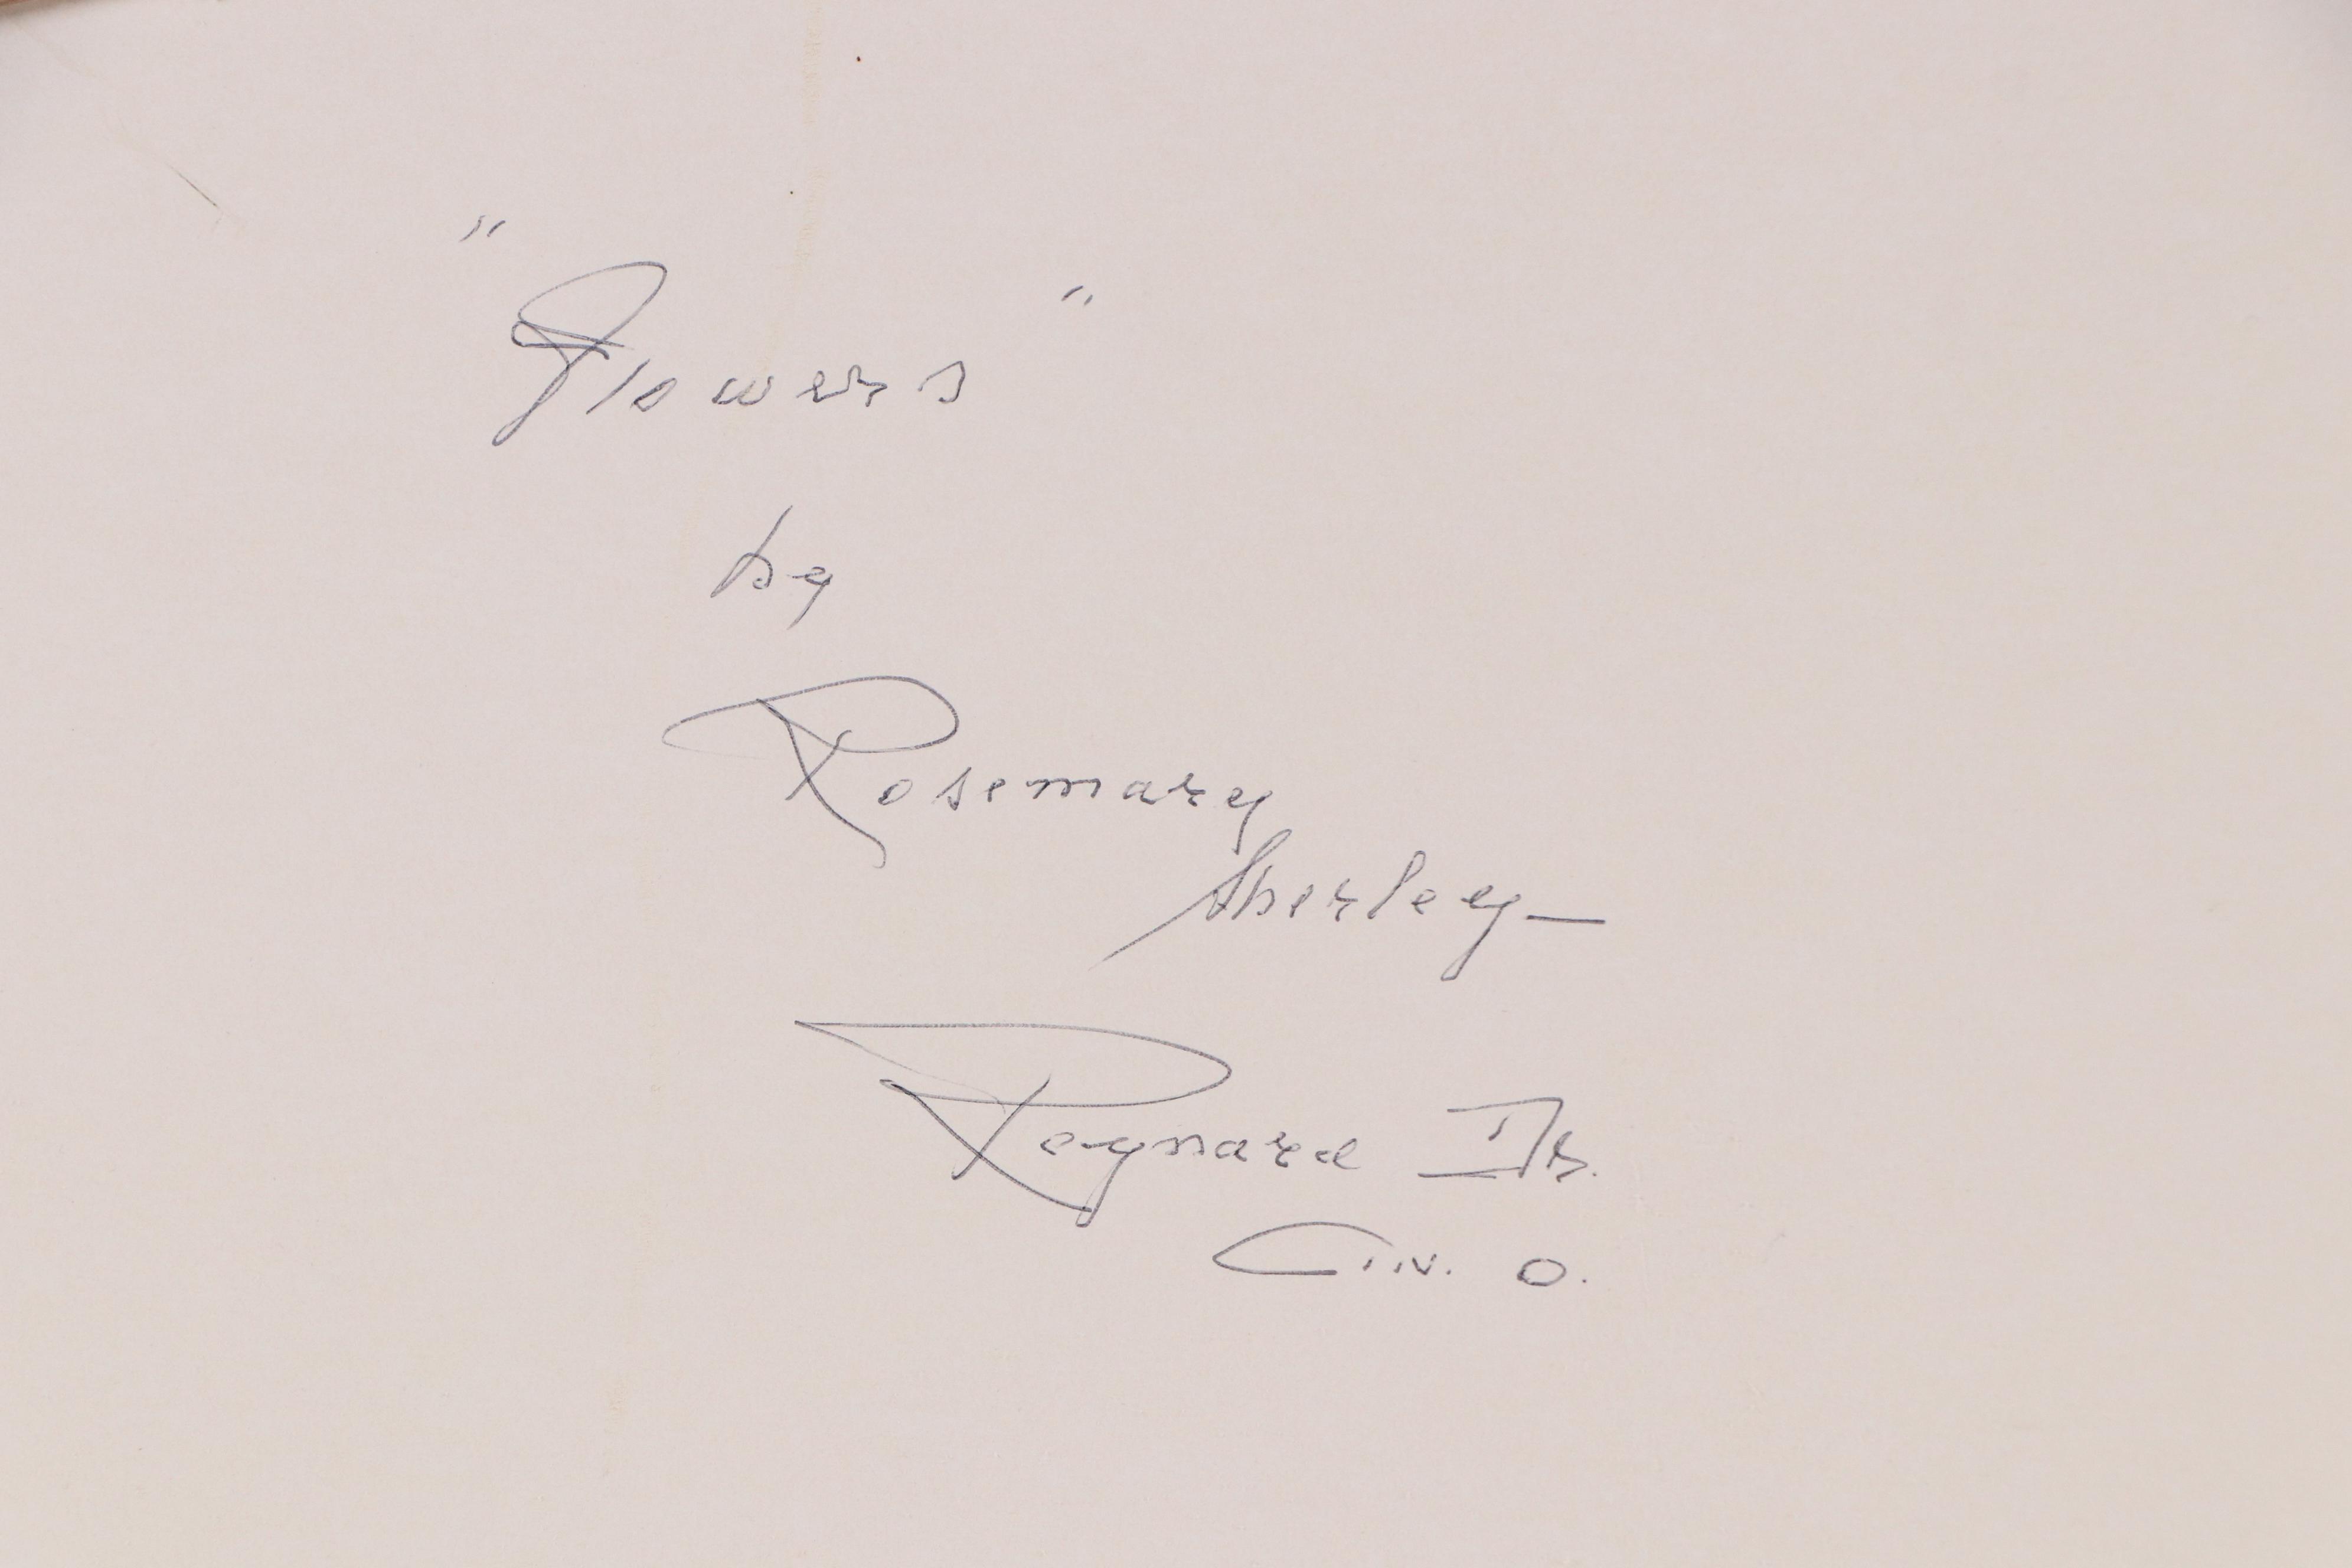 "Flowers"
by
Rosemary
Sherley—
Reynard
Cin. O.